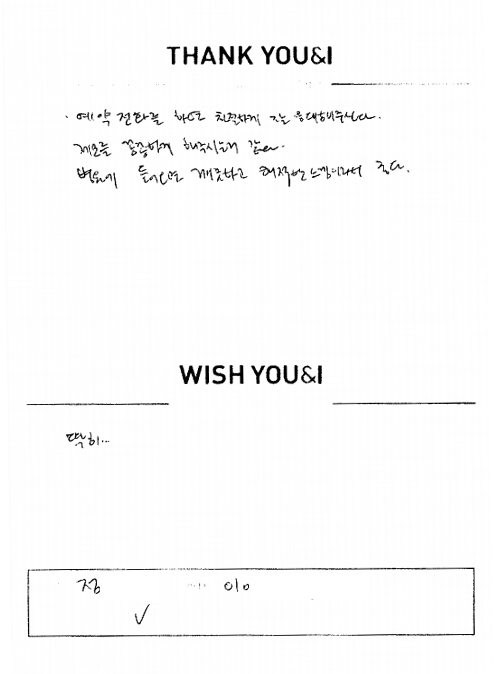 THANK YOU&I
· 예약 전화를 하면 친절하게 응대해주신다.
제모를 꼼꼼하게 해주시는거 같다.
병원에 들어오면 깨끗하고 쾌적한 느낌이라서 좋다.
WISH YOU&I
딱히...
010